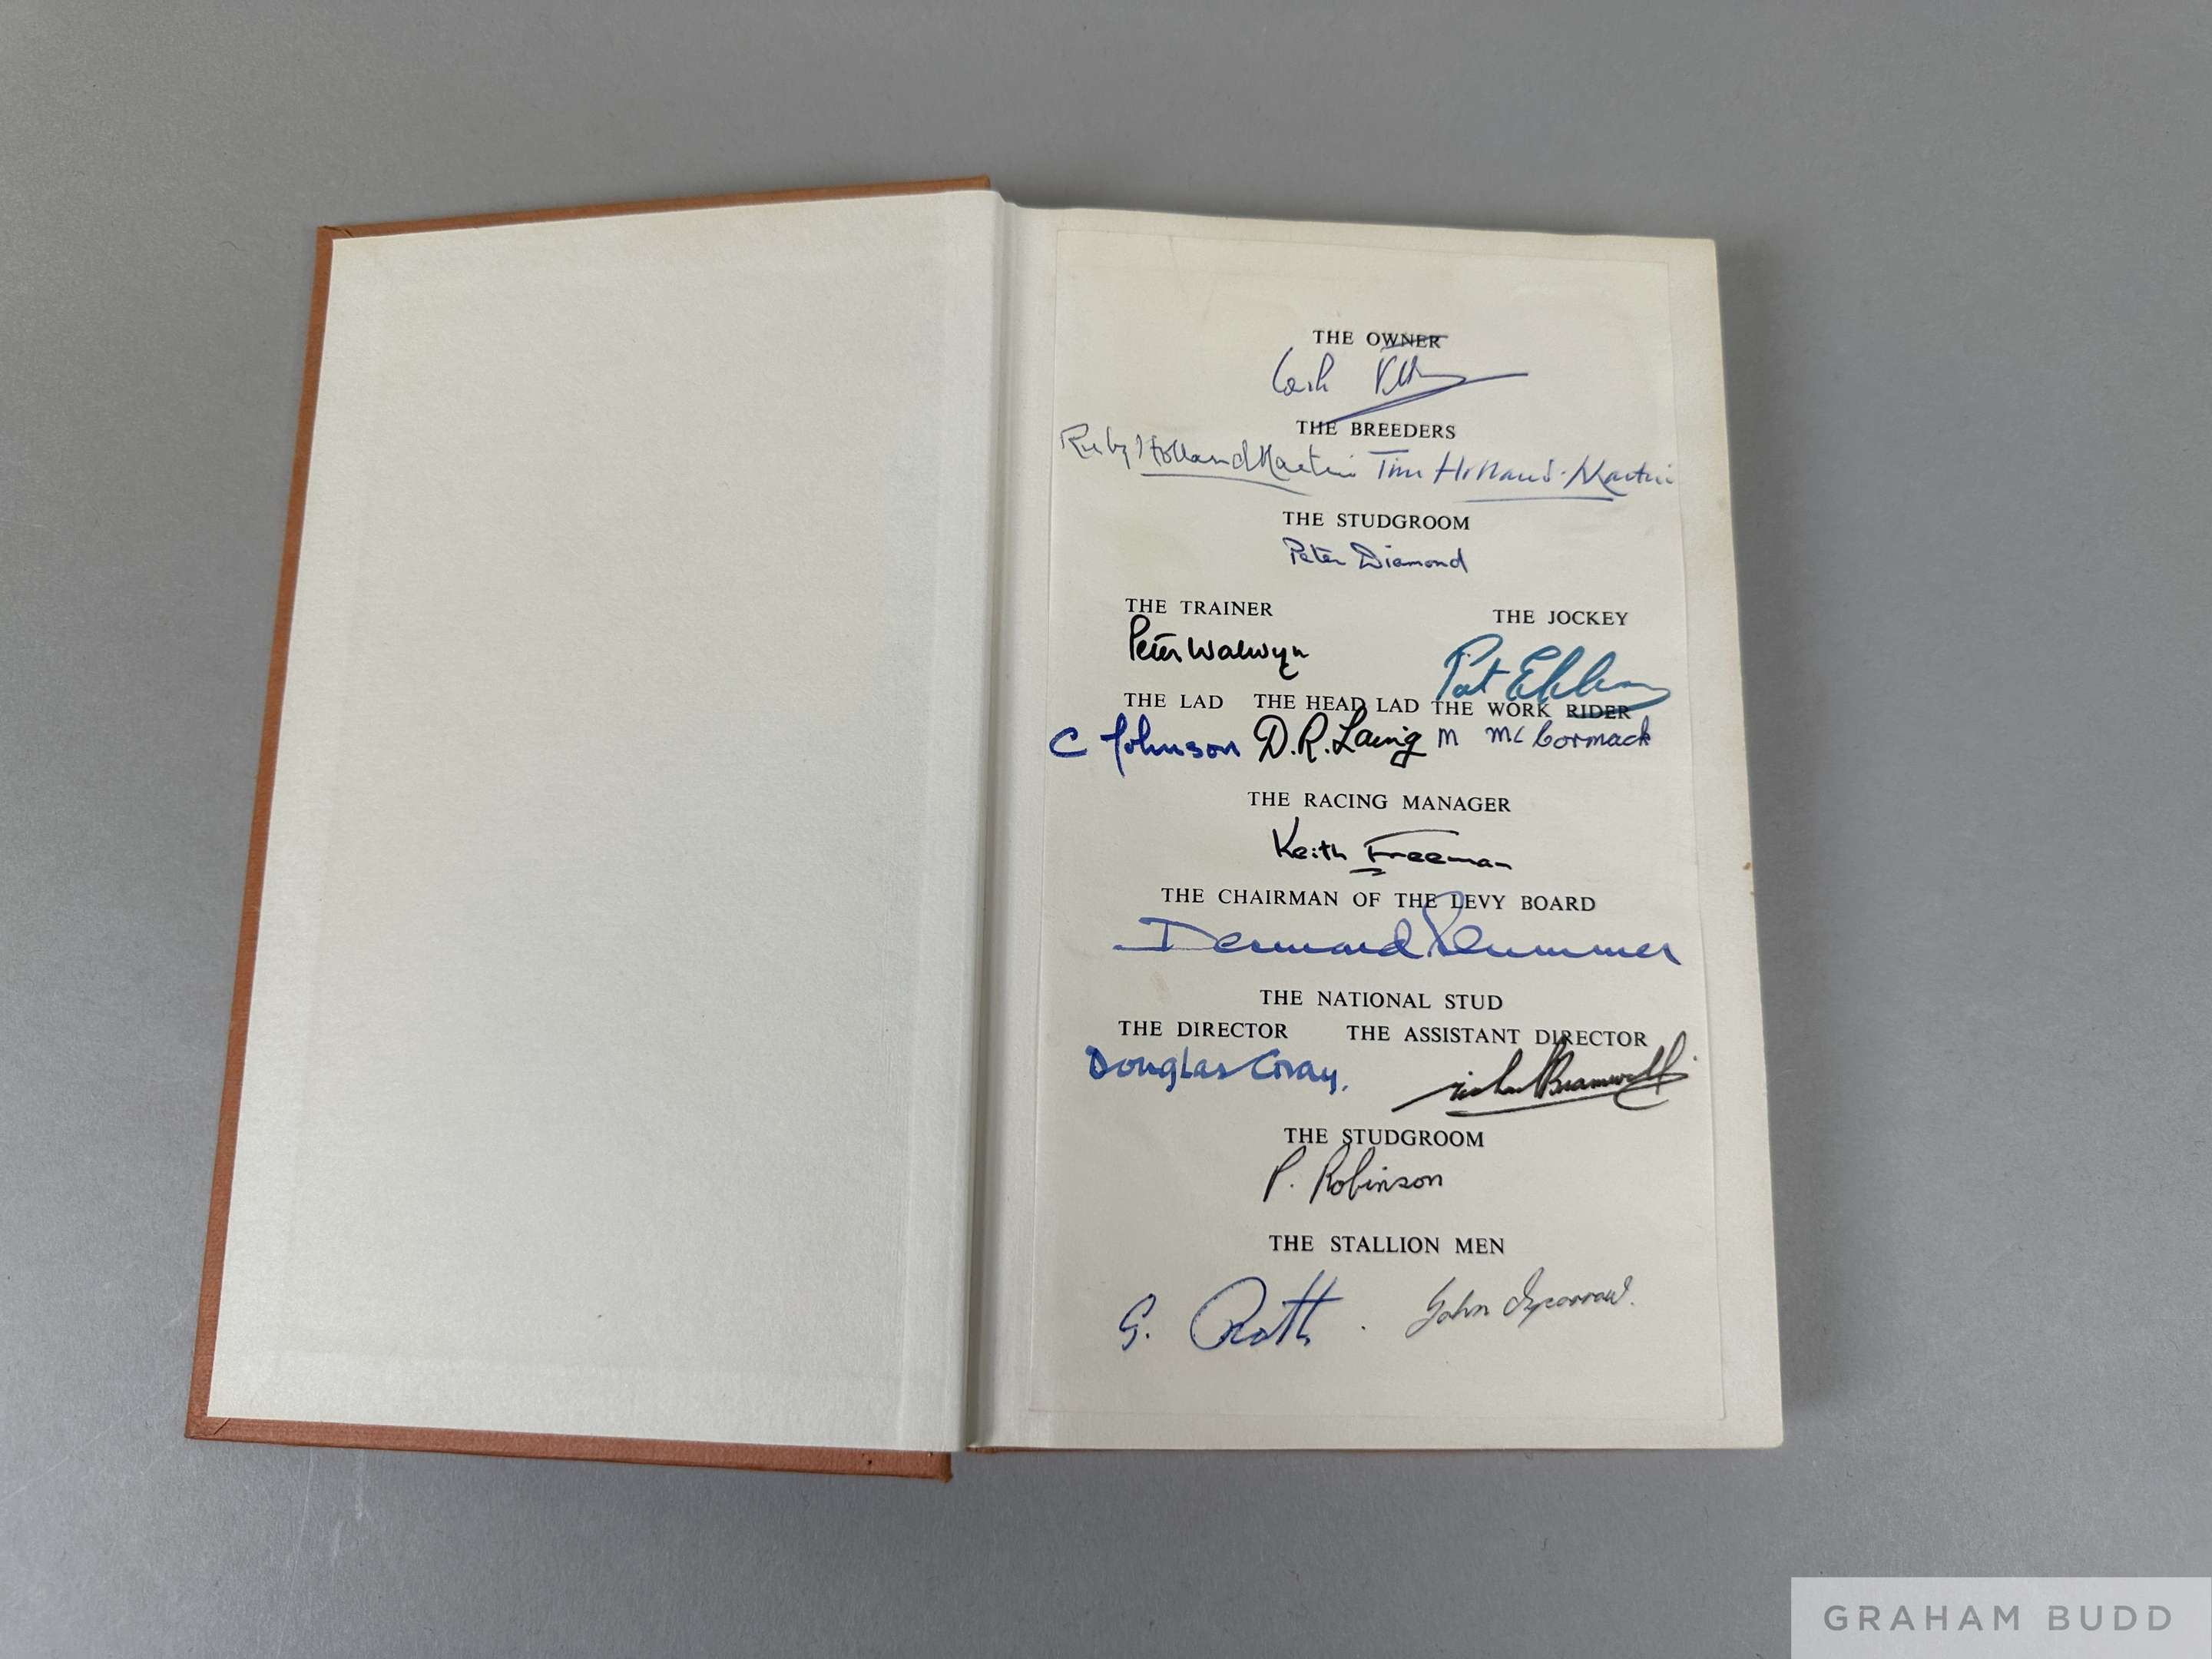 THE OWNER
THE BREEDERS
Ruby Holland Martin Tim Holland-Martin
THE STUDGROOM
Peter Diamond
THE TRAINER THE JOCKEY
Peter Walwyn Pat Eddery
THE LAD THE HEAD LAD THE WORK RIDER
C Johnson D.R. Laing M McCormack
THE RACING MANAGER
Keith Freeman
THE CHAIRMAN OF THE LEVY BOARD
Desmond Plummer
THE NATIONAL STUD
THE DIRECTOR THE ASSISTANT DIRECTOR
Douglas Gray. Michael Bramwell
THE STUDGROOM
P. Robinson
THE STALLION MEN
G. Roth. John Sparrow.
GRAHAM BUDD